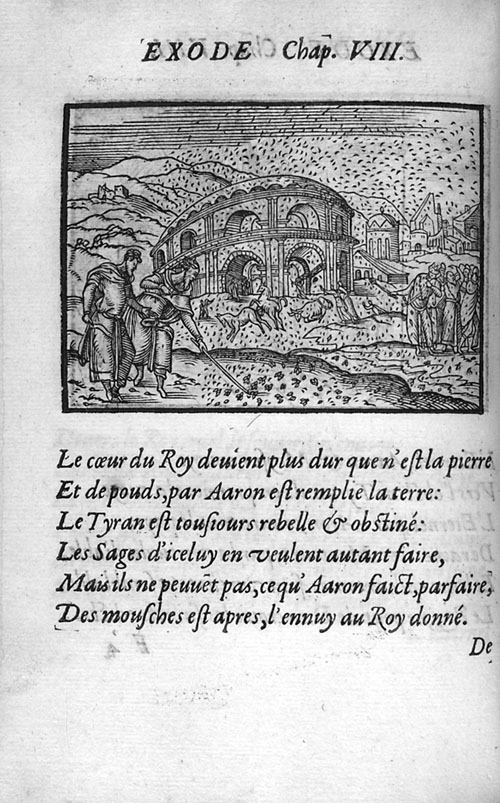 EXODE Chap̄. VIII.
Le cœur du Roy deuient plus dur que n'est la pierre
Et de pouds, par Aaron est remplie la terre:
Le Tyran est tousiours rebelle & obstiné:
Les Sages d'iceluy en veulent autant faire,
Mais ils ne peuuēt pas, ce qu'Aaron faict, parfaire,
Des mousches est apres, l'ennuy au Roy donné.
De